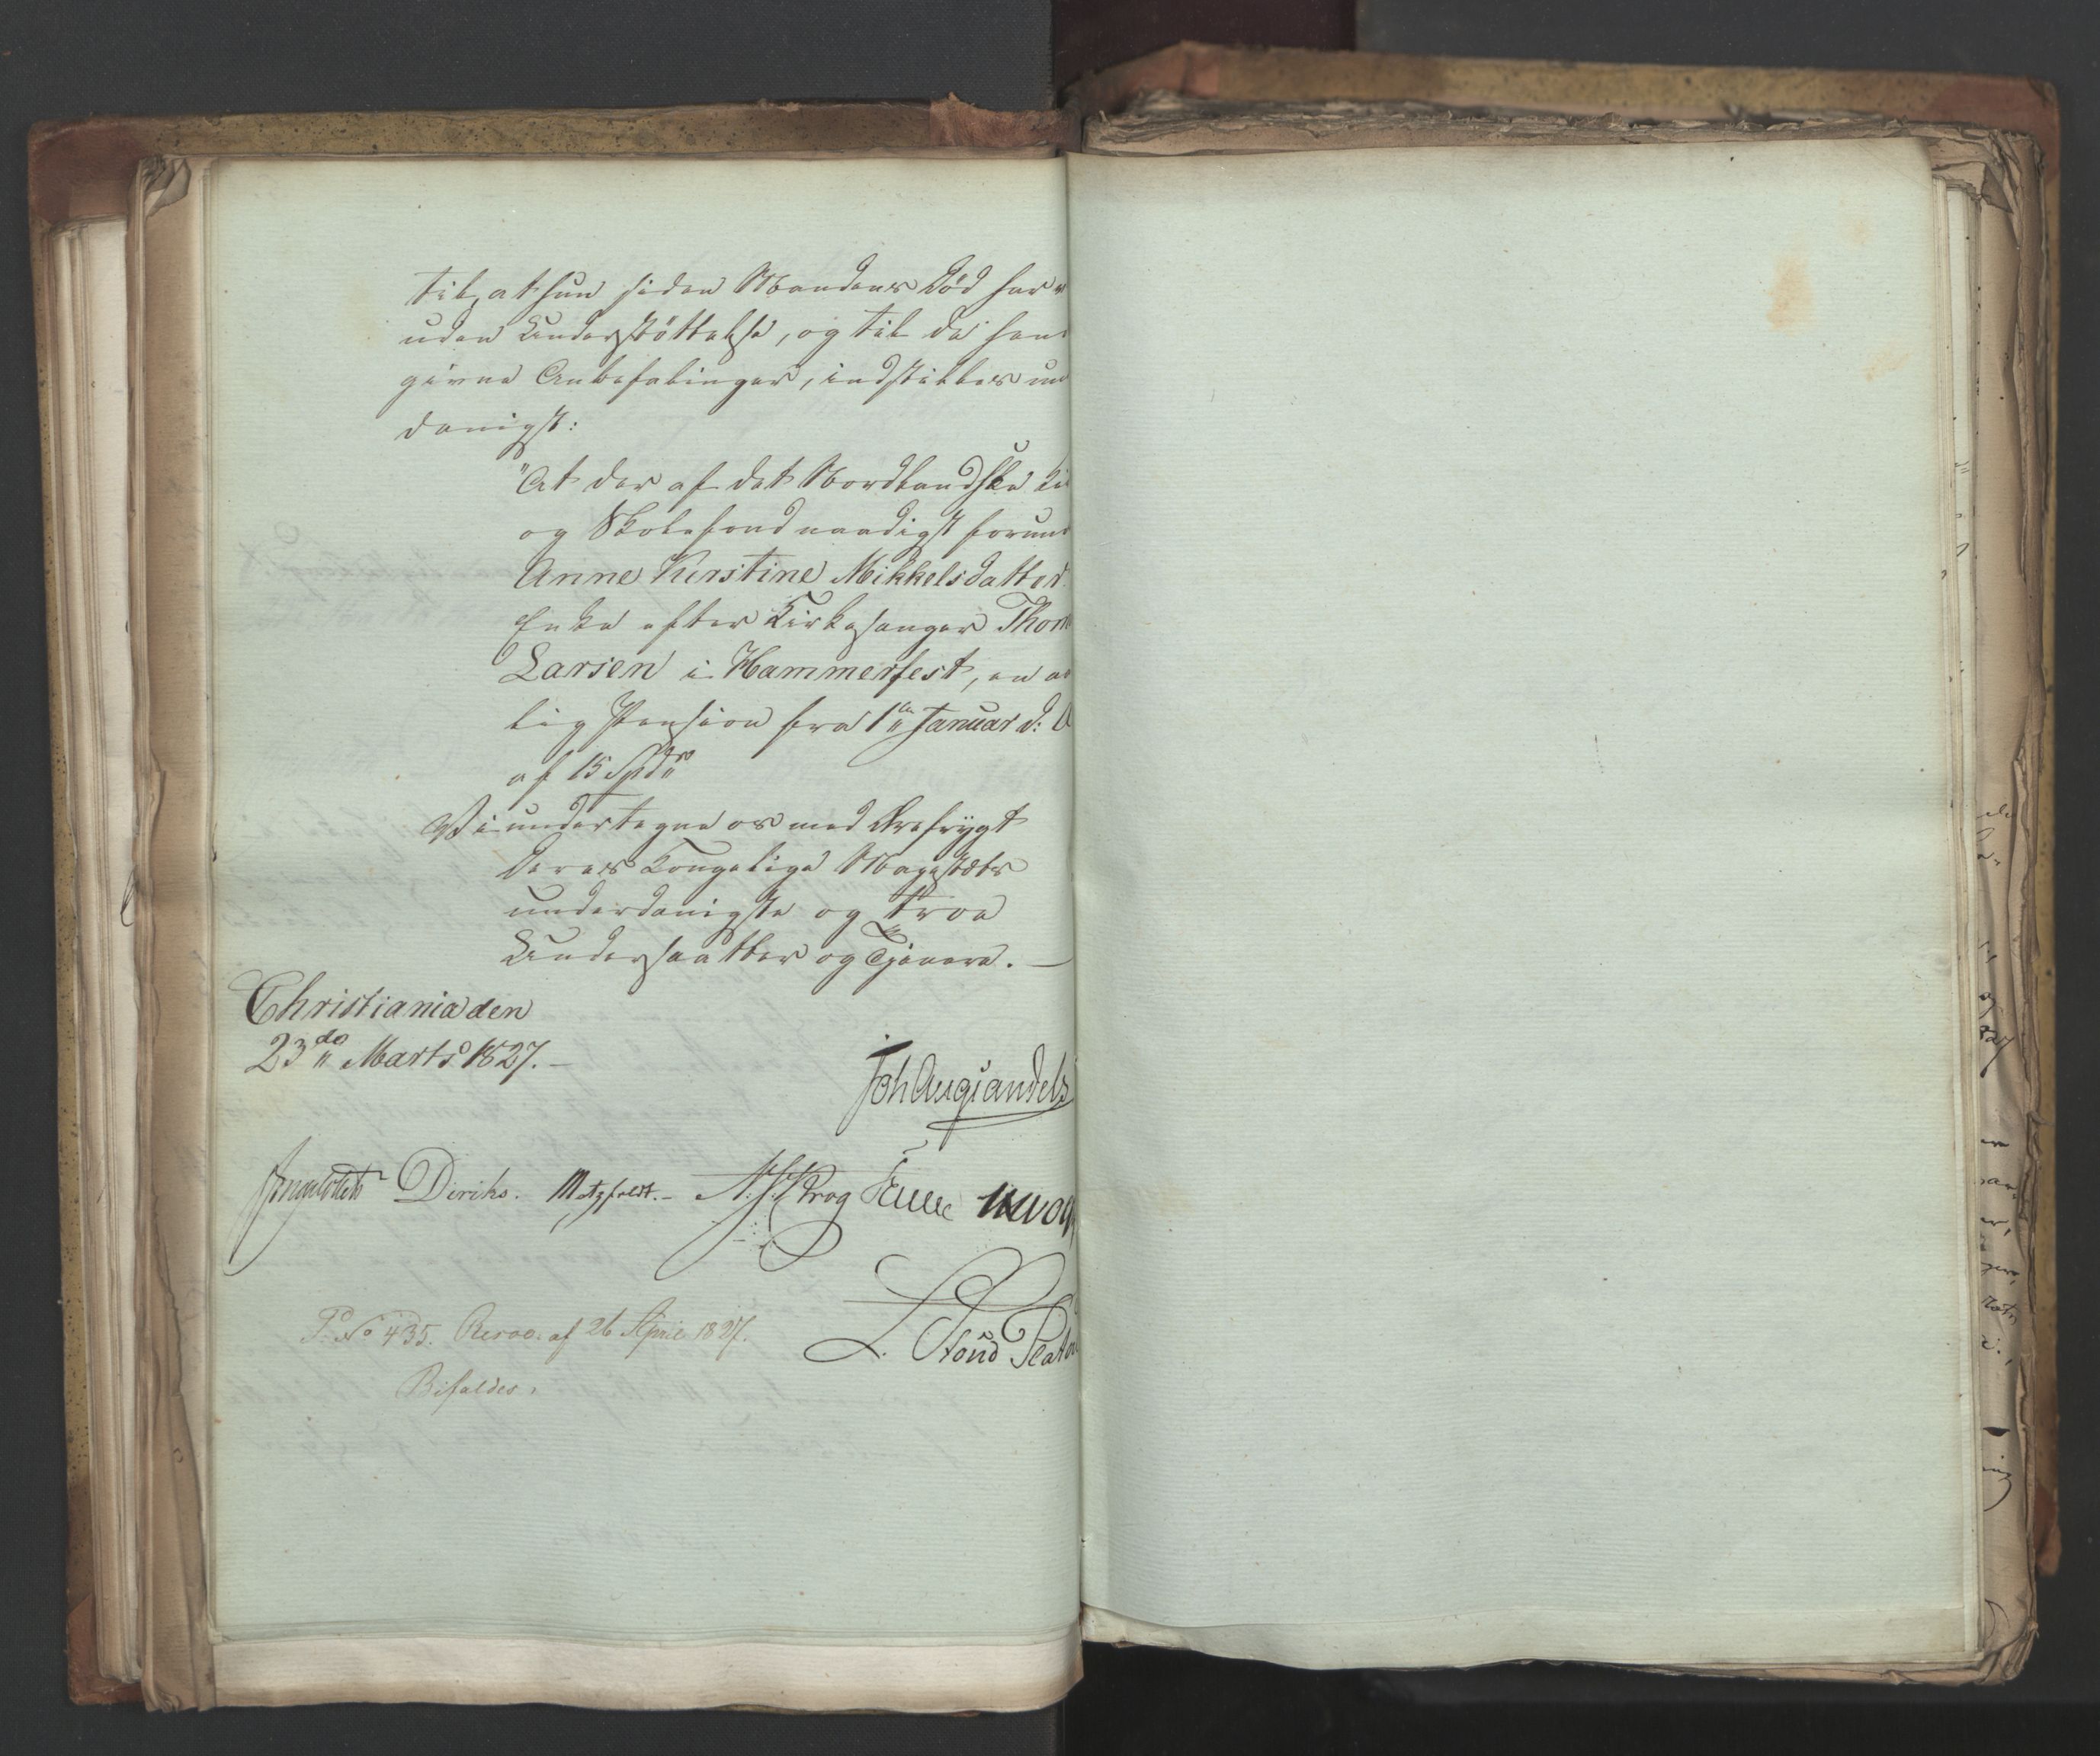 til, at hun siden Mandens Död har
uden Understöttelse, og til de hen
givne Anbefalinger, indstilles un
danigst:
"At der af det Nordlandske Ki
og Skolefond naadigst forun
Anne Kirstine Mikkelsdatter
Enke efter Kirkesanger Thom
Larsen i Hammerfest, en a
lig Pension fra 1ste Januar d: A
af 15 Spdr
Vi undertegne os med Ærefrygt
Deres Kongelige Majestæts
underdanigste og troe
Undersaatter og Tjenere. —
Christiania den
23de Marts 1827. —
Joh Aug Sandels
Diriks. Motzfeldt. — Krog
L. Röud Platou
P. No 435. Resol. af 26 April 1827.
Bifaldes.